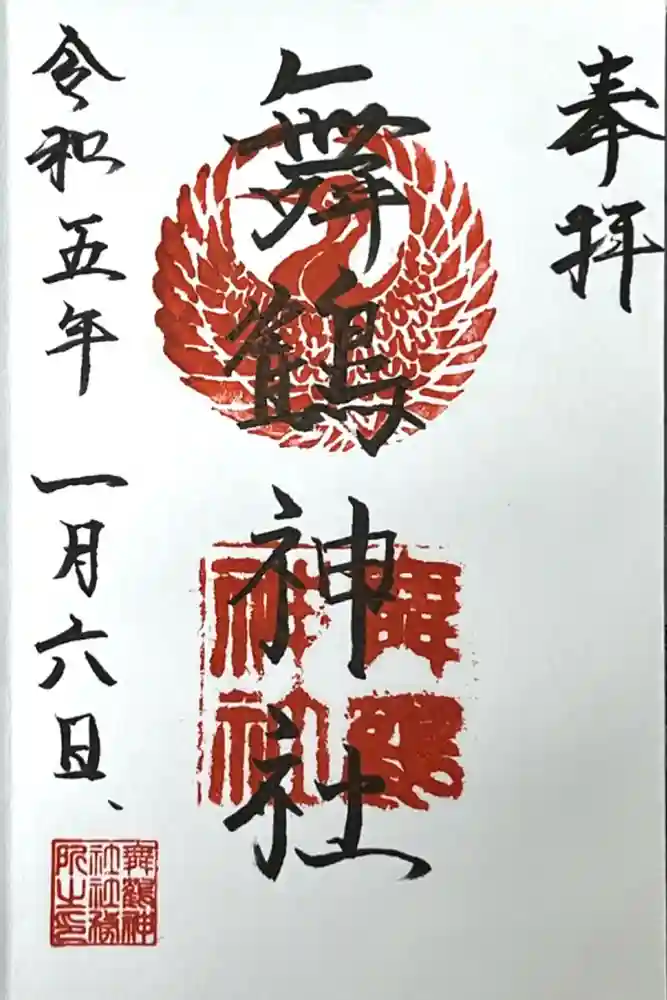 奉拝
舞鶴神社
舞鶴
神社
令和五年 一月六日、
舞鶴神
社社務
所之印